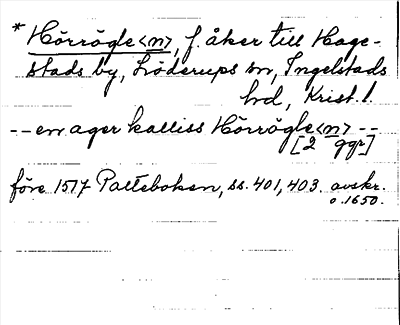 * Hörrögle<n>, f. åker till Hage-
stads by, Löderups sn, Ingelstads
hd, Krist. l.
-- en ager kalliss Hörrögle<n> --
[2 ggr]
före 1517 Palteboken, ss. 401, 403. avskr.
o. 1650.